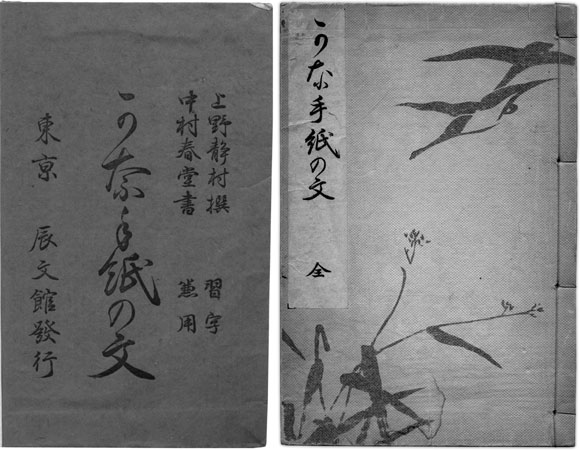 上野静村撰
中村春堂書
習字
兼用
かな手紙の文
東京 辰文館發行
かな手紙の文
全